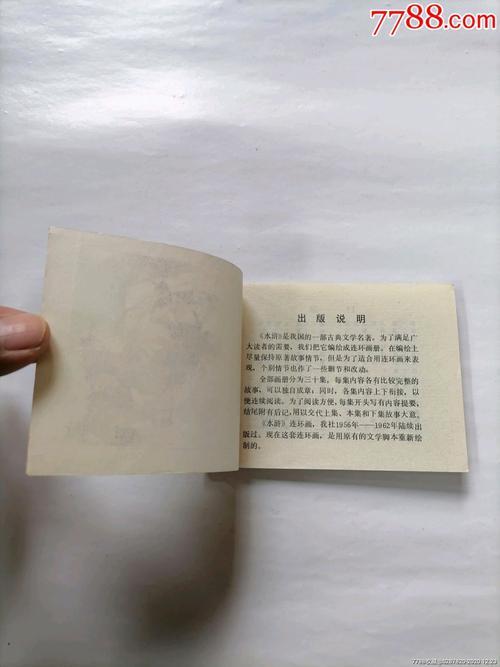 7788.com
出版说明
《水浒》是我国的一部古典文学名著。为了满足广
大读者的需要，我们把它编绘成连环画册。在编绘上
尽量保持原著故事情节，但是为了适合用连环画来表
现，个别情节也作了一些删节和改动。
全部画册分为三十集，每集内容各有比较完整的
故事，可以独自成章；同时，各集内容上下衔接，以
便连续阅读。为了阅读方便，每集开头写有内容提要，
结尾附有后记，用以交代上集、本集和下集故事大意。
《水浒》连环画，我社1956年——1962年陆续出
版过。现在这套连环画，是用原有的文学脚本重新绘
制的。